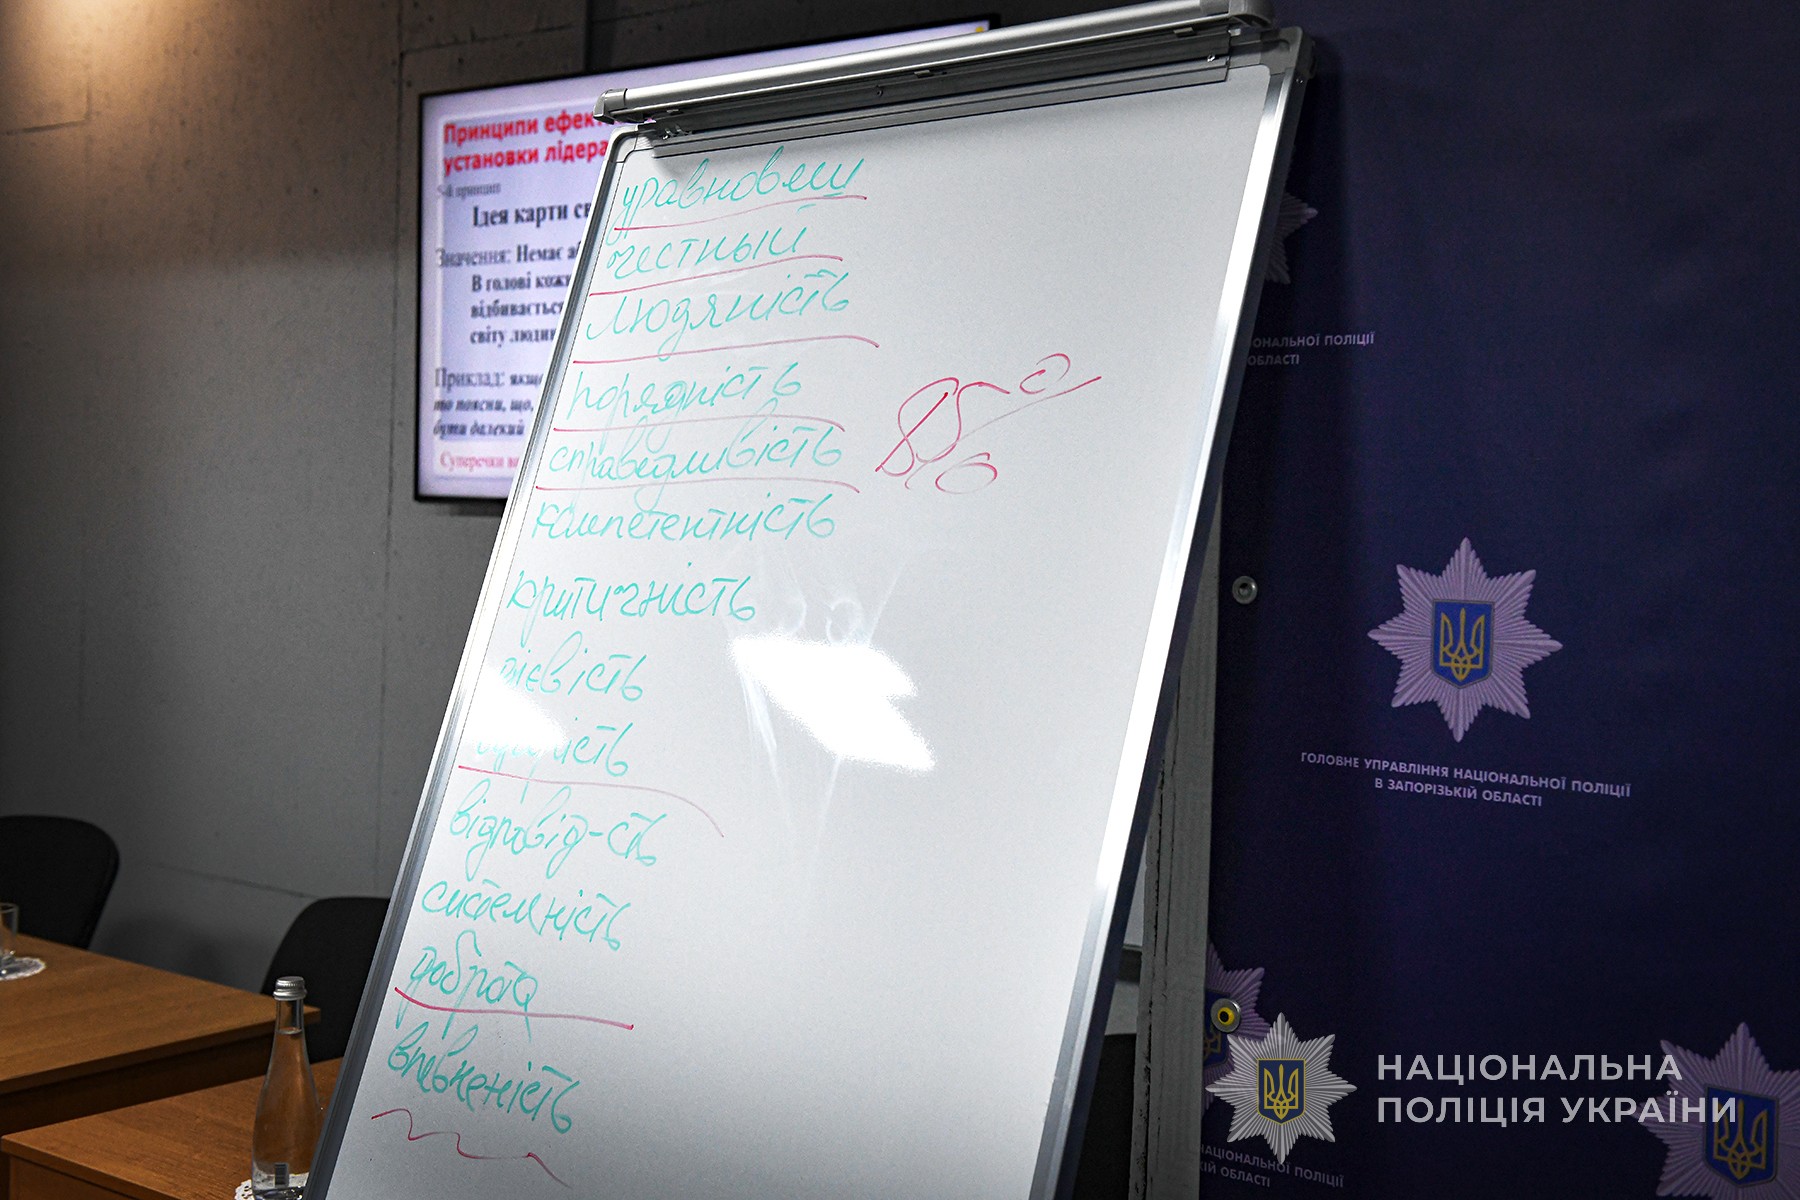 Принципи ефект
установки лідера
5-й принцип
Ідея карти св
Значення: Немає аб
В голові кожн
відбивається
світу людин
Приклад: якщо
то поясни, що,
бути далекий
Суперечки
уравновеш
честный
людяність
порядність
справедливість
компетентність
критичність
дієвість
відповід-сть
системність
доброта
впевненість
85%
ОНАЛЬНОЇ ПОЛІЦІЇ
ОБЛАСТІ
ГОЛОВНЕ УПРАВЛІННЯ НАЦІОНАЛЬНОЇ ПОЛІЦІЇ
В ЗАПОРІЗЬКІЙ ОБЛАСТІ
НАЦІОНАЛЬНА
ПОЛІЦІЯ УКРАЇНИ
АЦІОНАЛЬНОЇ ПОЛІЦІЇ
КІЙ ОБЛАСТІ